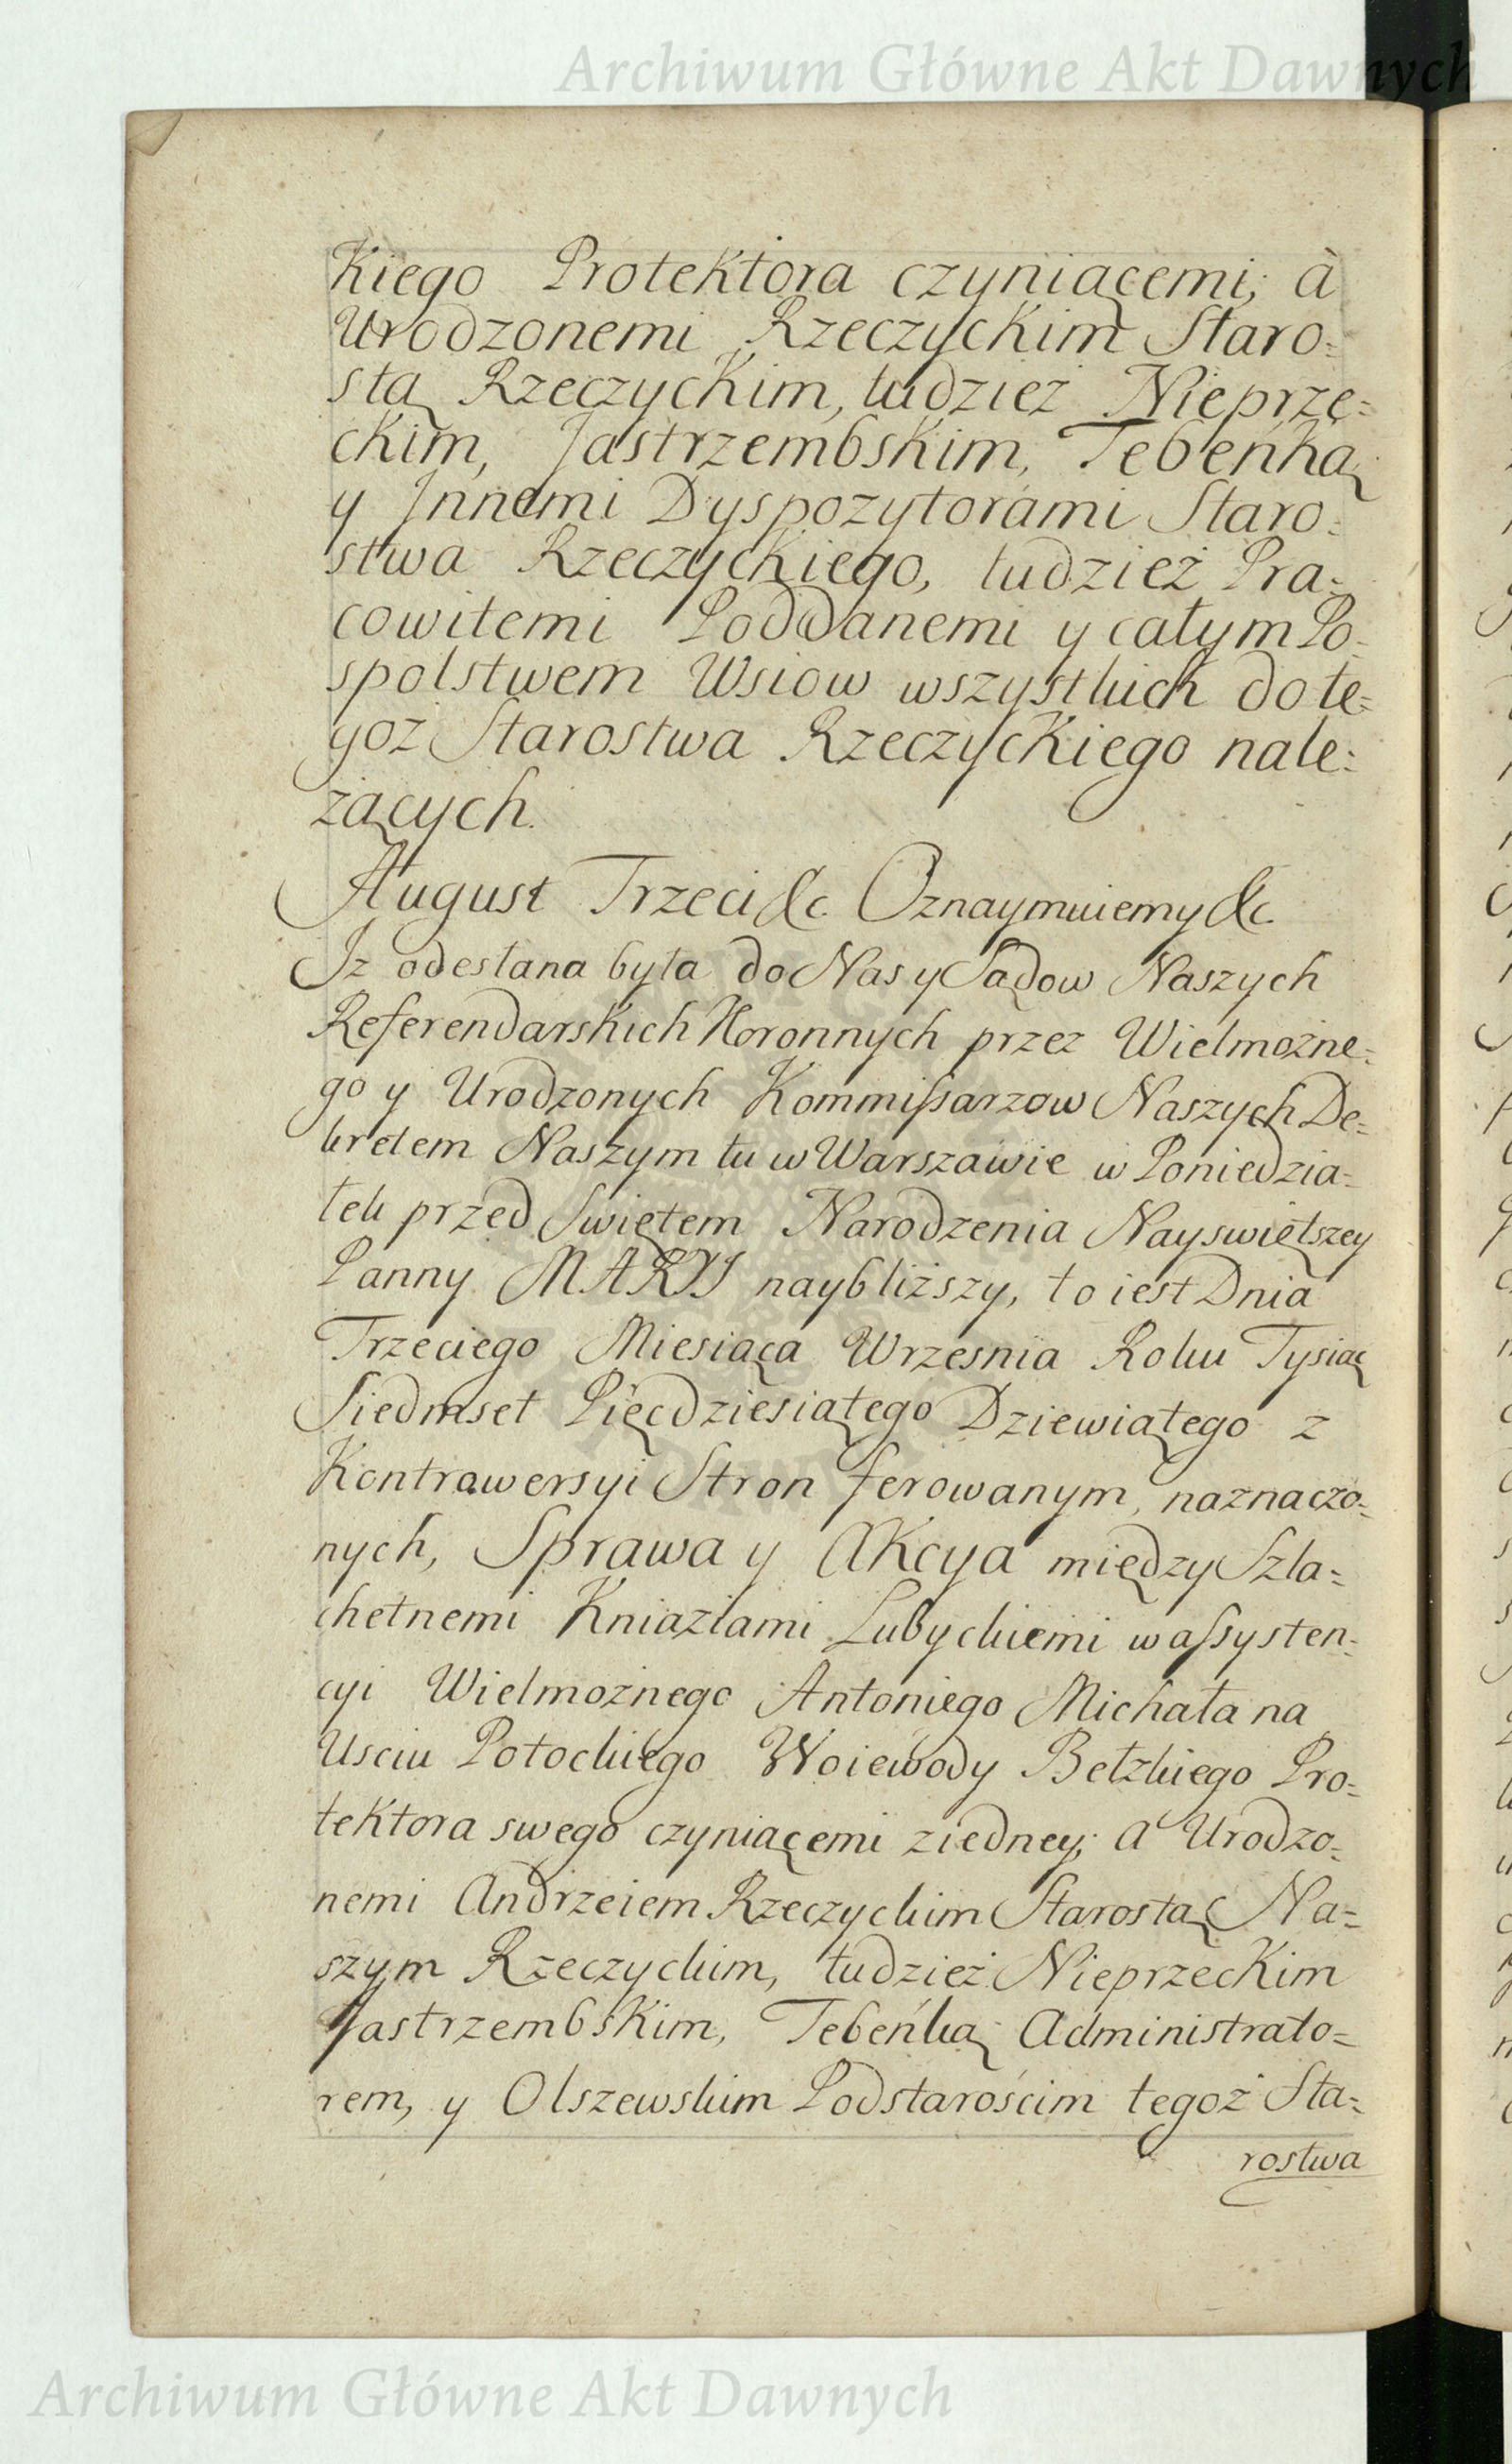 Archiwum Główne Akt Dawnych
Kiego Protektora czyniącemi; à
Urodzonemi Rzeczyckim Staro=
stą Rzeczyckim, tudzież Nieprze=
ckim, Jastrzembskim, Tebeńką
y Jnnemi Dyspozytorami Staro=
stwa Rzeczyckiego, tudzież Pra=
cowitemi Poddanemi y całym Po=
spolstwem Wsiow wszystkich do te=
goż Starostwa Rzeczyckiego nale=
żących.
August Trzeci &c. Oznaymuiemy &c.
Jż odesłana była do Nas y Sądow Naszych
Referendarskich Koronnych przez Wielmożne=
go y Urodzonych Kommissarzow Naszych De=
kretem Naszym tu w Warszawie w Poniedzia=
łek przed Swiętem Narodzenia Nayswiętszey
Panny MARYI naybliższy, to iest Dnia
Trzeciego Miesiąca Wrzesnia Roku Tysiąc
Siedmset Pięcdziesiątego Dziewiątego z
Kontrawersyi Stron ferowanym, naznaczo=
nych, Sprawa y Akcya między Szla=
chetnemi Kniaziami Lubyckiemi w assysten=
cyi Wielmożnego Antoniego Michała na
Usciu Potockiego Woiewody Bełzkiego Pro=
tektora swego czyniącemi z iedney; a Urodzo=
nemi Andrzeiem Rzeczyckim Starostą Na=
szym Rzeczyckim, tudzież Nieprzeckim
Jastrzembskim, Tebeńką Administrato=
rem, y Olszewskim Podstarościm tegoż Sta=
rostwa
Archiwum Główne Akt Dawnych